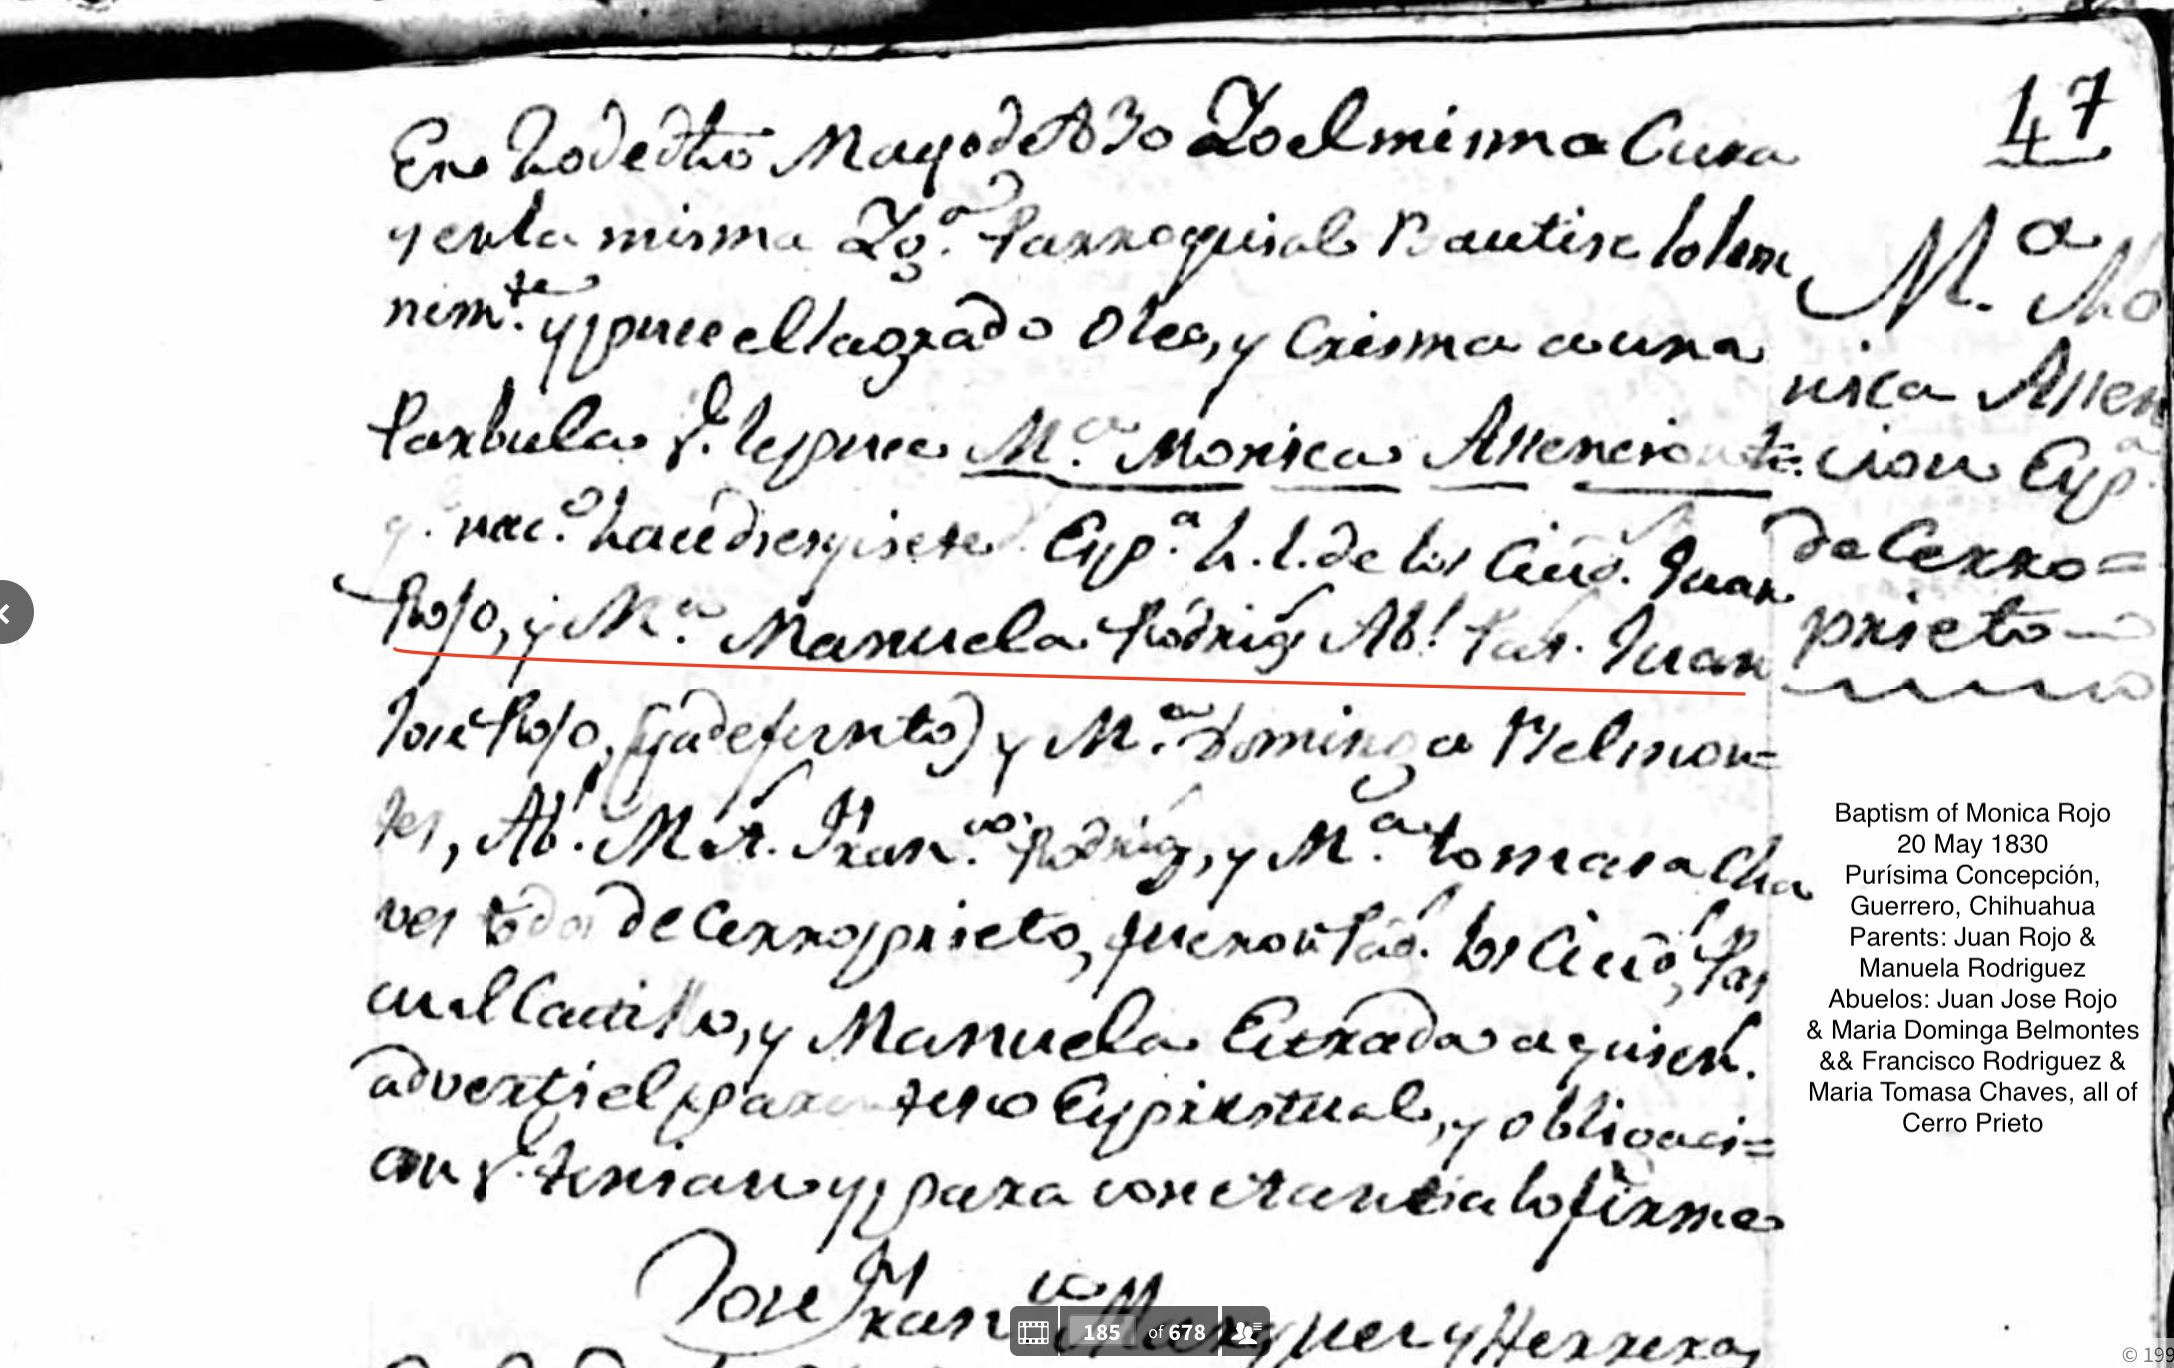 En 20 de dho Mayo de 830 Yo el mismo Cura
y en la misma Yg.ª Parroquial Bautise solem
nem.te y puse el sagrado Oleo, y Crisma a una
Parbula q. le puse M.ª Monica Assencion
q. nac.º hace diesysiete Esp.ª h. l. de los Ciud.s Juan
Rojo, y M.ª Manuela Rodrig.s Ab.s Pat.s Juan
José Rojo, (ya defunto) y M.ª Dominga Belmon=
tes, Ab.s Mat.s Fran.co Rodrig.s, y M.ª tomasa Cha
ves todos de Cerroprieto, fueron Pad.s los Ciud.s Pas
cual Castillo, y Manuela Estrada a quien.s
adverti el parentesco Espiritual, y obligaci=
on q. tenian y para constancia lo firme
Jose Fran.co y Herrera
47
M.ª Mo
nica Assen
cion Esp.ª
de Cerro=
prieto
Baptism of Monica Rojo
20 May 1830
Purísima Concepción,
Guerrero, Chihuahua
Parents: Juan Rojo &
Manuela Rodriguez
Abuelos: Juan Jose Rojo
& Maria Dominga Belmontes
&& Francisco Rodriguez &
Maria Tomasa Chaves, all of
Cerro Prieto
185 of 678
© 199